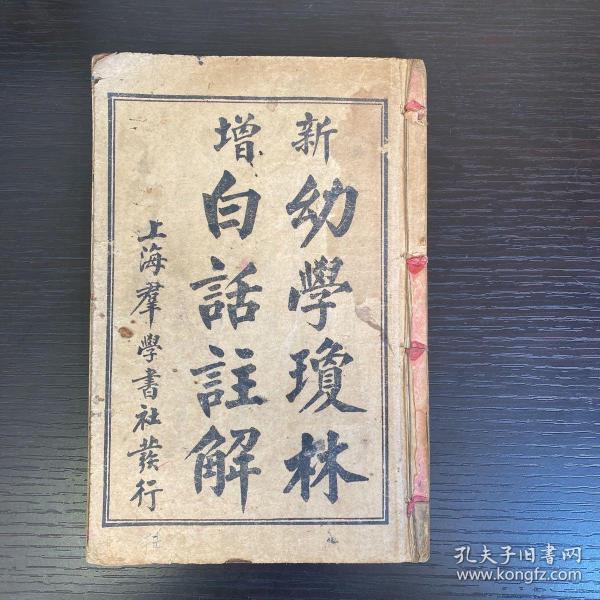 新增
幼學瓊林
白話註解
上海羣學書社發行
孔夫子旧书网
www.kongfz.com